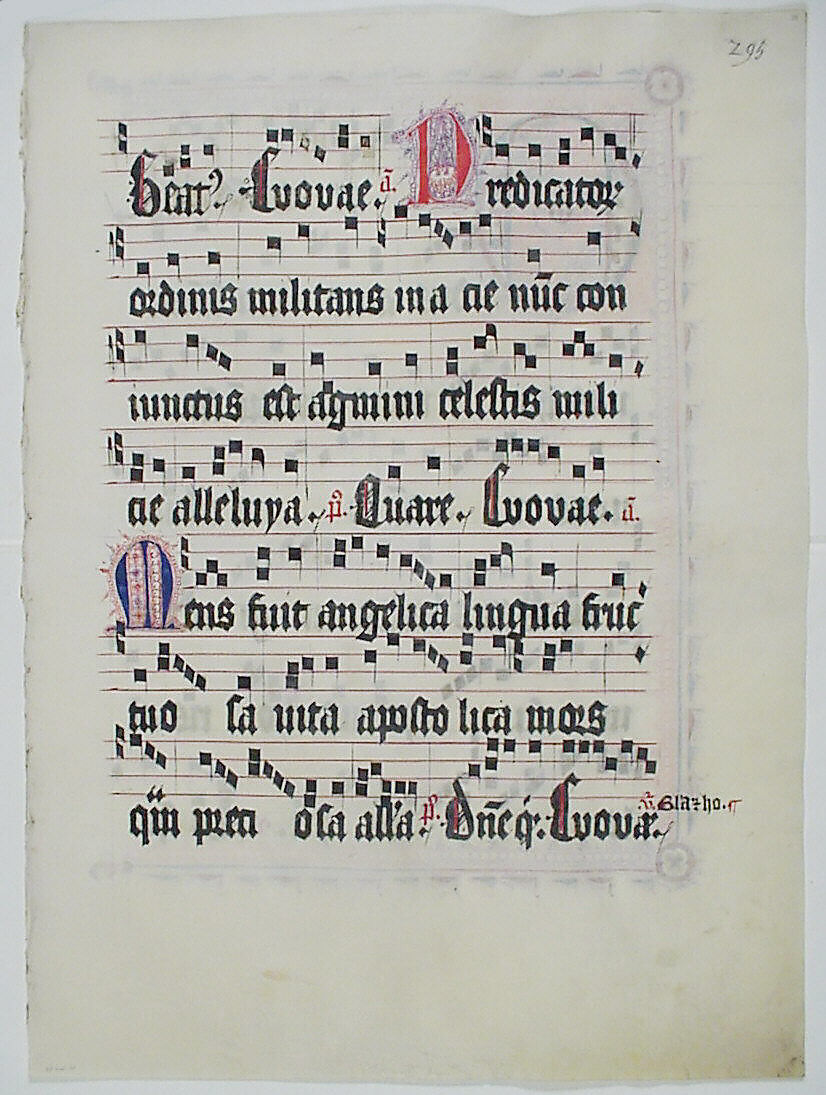 295
Beatꝰ. Euouae. a̅. Predicator
ordinis militans in a cie nu̅c con
iunctus est agmini celestis mili
cie alleluya. p̅s. Quare. Euouae. a̅.
Mens fuit angelica lingua fruc
tuo sa uita aposto lica mors
q̅m preci osa all'a. p̅s. Dn̅e q̇. Euouae.
V̅. Glaꝛ ho.